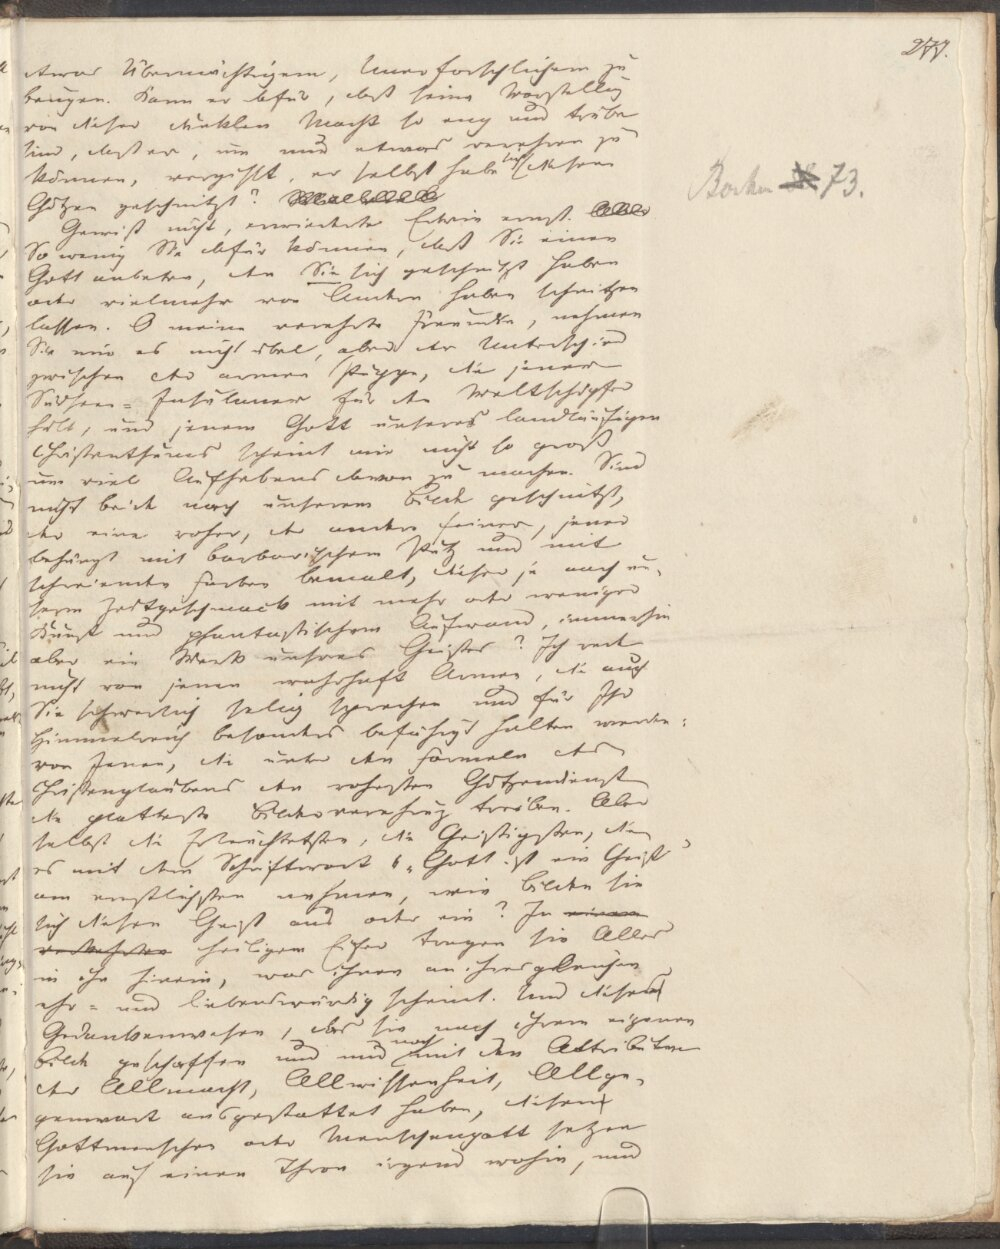 277.
etwas Übermächtigem, Unerforschlichem zu
beugen. Kann er dafür, daß seine Vorstellung
von dieser dunklen Macht so eng und trübe
sind, daß er, um nur etwas verehren zu
können, vergißt, er selbst habe sich diesen
Götzen geschnitzt?
Gewiß nicht, erwiederte Edwin ernst.
So wenig Sie dafür können, daß Sie einen
Gott anbeten, den Sie sich geschnitzt haben
oder vielmehr von Andern haben schnitzen
lassen. O meine verehrte Freundin, nehmen
Sie mir es nicht übel, aber der Unterschied
zwischen der armen Puppe, die jener
Südsee-Insulaner für den Weltschöpfer
hält, und jenem Gott unseres landläufigen
Christenthums scheint mir nicht so groß
um viel Aufhebens davon zu machen. Sind
nicht beide nach unserem Bilde geschnitzt,
der eine roher, der andre feiner, jener
behängt mit barbarischem Putz und mit
schreienden Farben bemalt, dieser je nach un-
serm Zeitgeschmack mit mehr oder weniger
Kunst und phantastischem Aufwand, immerhin
aber ein Werk unseres Geistes? Ich rede
nicht von jenen wahrhaft Armen, die auch
Sie schwerlich selig sprechen und für Ihr
Himmelreich besonders befähigt halten werden:
von Jenen, die unter den Formeln des
Christenglaubens den rohesten Götzendienst
die platteste Bilderverehrung treiben. Aber
selbst die Erleuchtetsten, die Geistigsten, die
es mit dem Schriftwort "Gott ist ein Geist"
am ernstlichsten nehmen, wie bilden sie
sich diesen Geist aus oder ein? In
heiligem Eifer tragen sie Alles
in ihn hinein, was ihnen an ihresgleichen
ehr- und liebenswürdig scheint. Und dieses
Gedankenwesen, das sie nach ihrem eigenen
Bilde geschaffen und nur noch mit den Attributen
der Allmacht, Allwissenheit, Allge-
genwart ausgestattet haben, diesen
Gottmenschen oder Menschengott setzen
sie auf einen Thron irgend wohin, und
73.